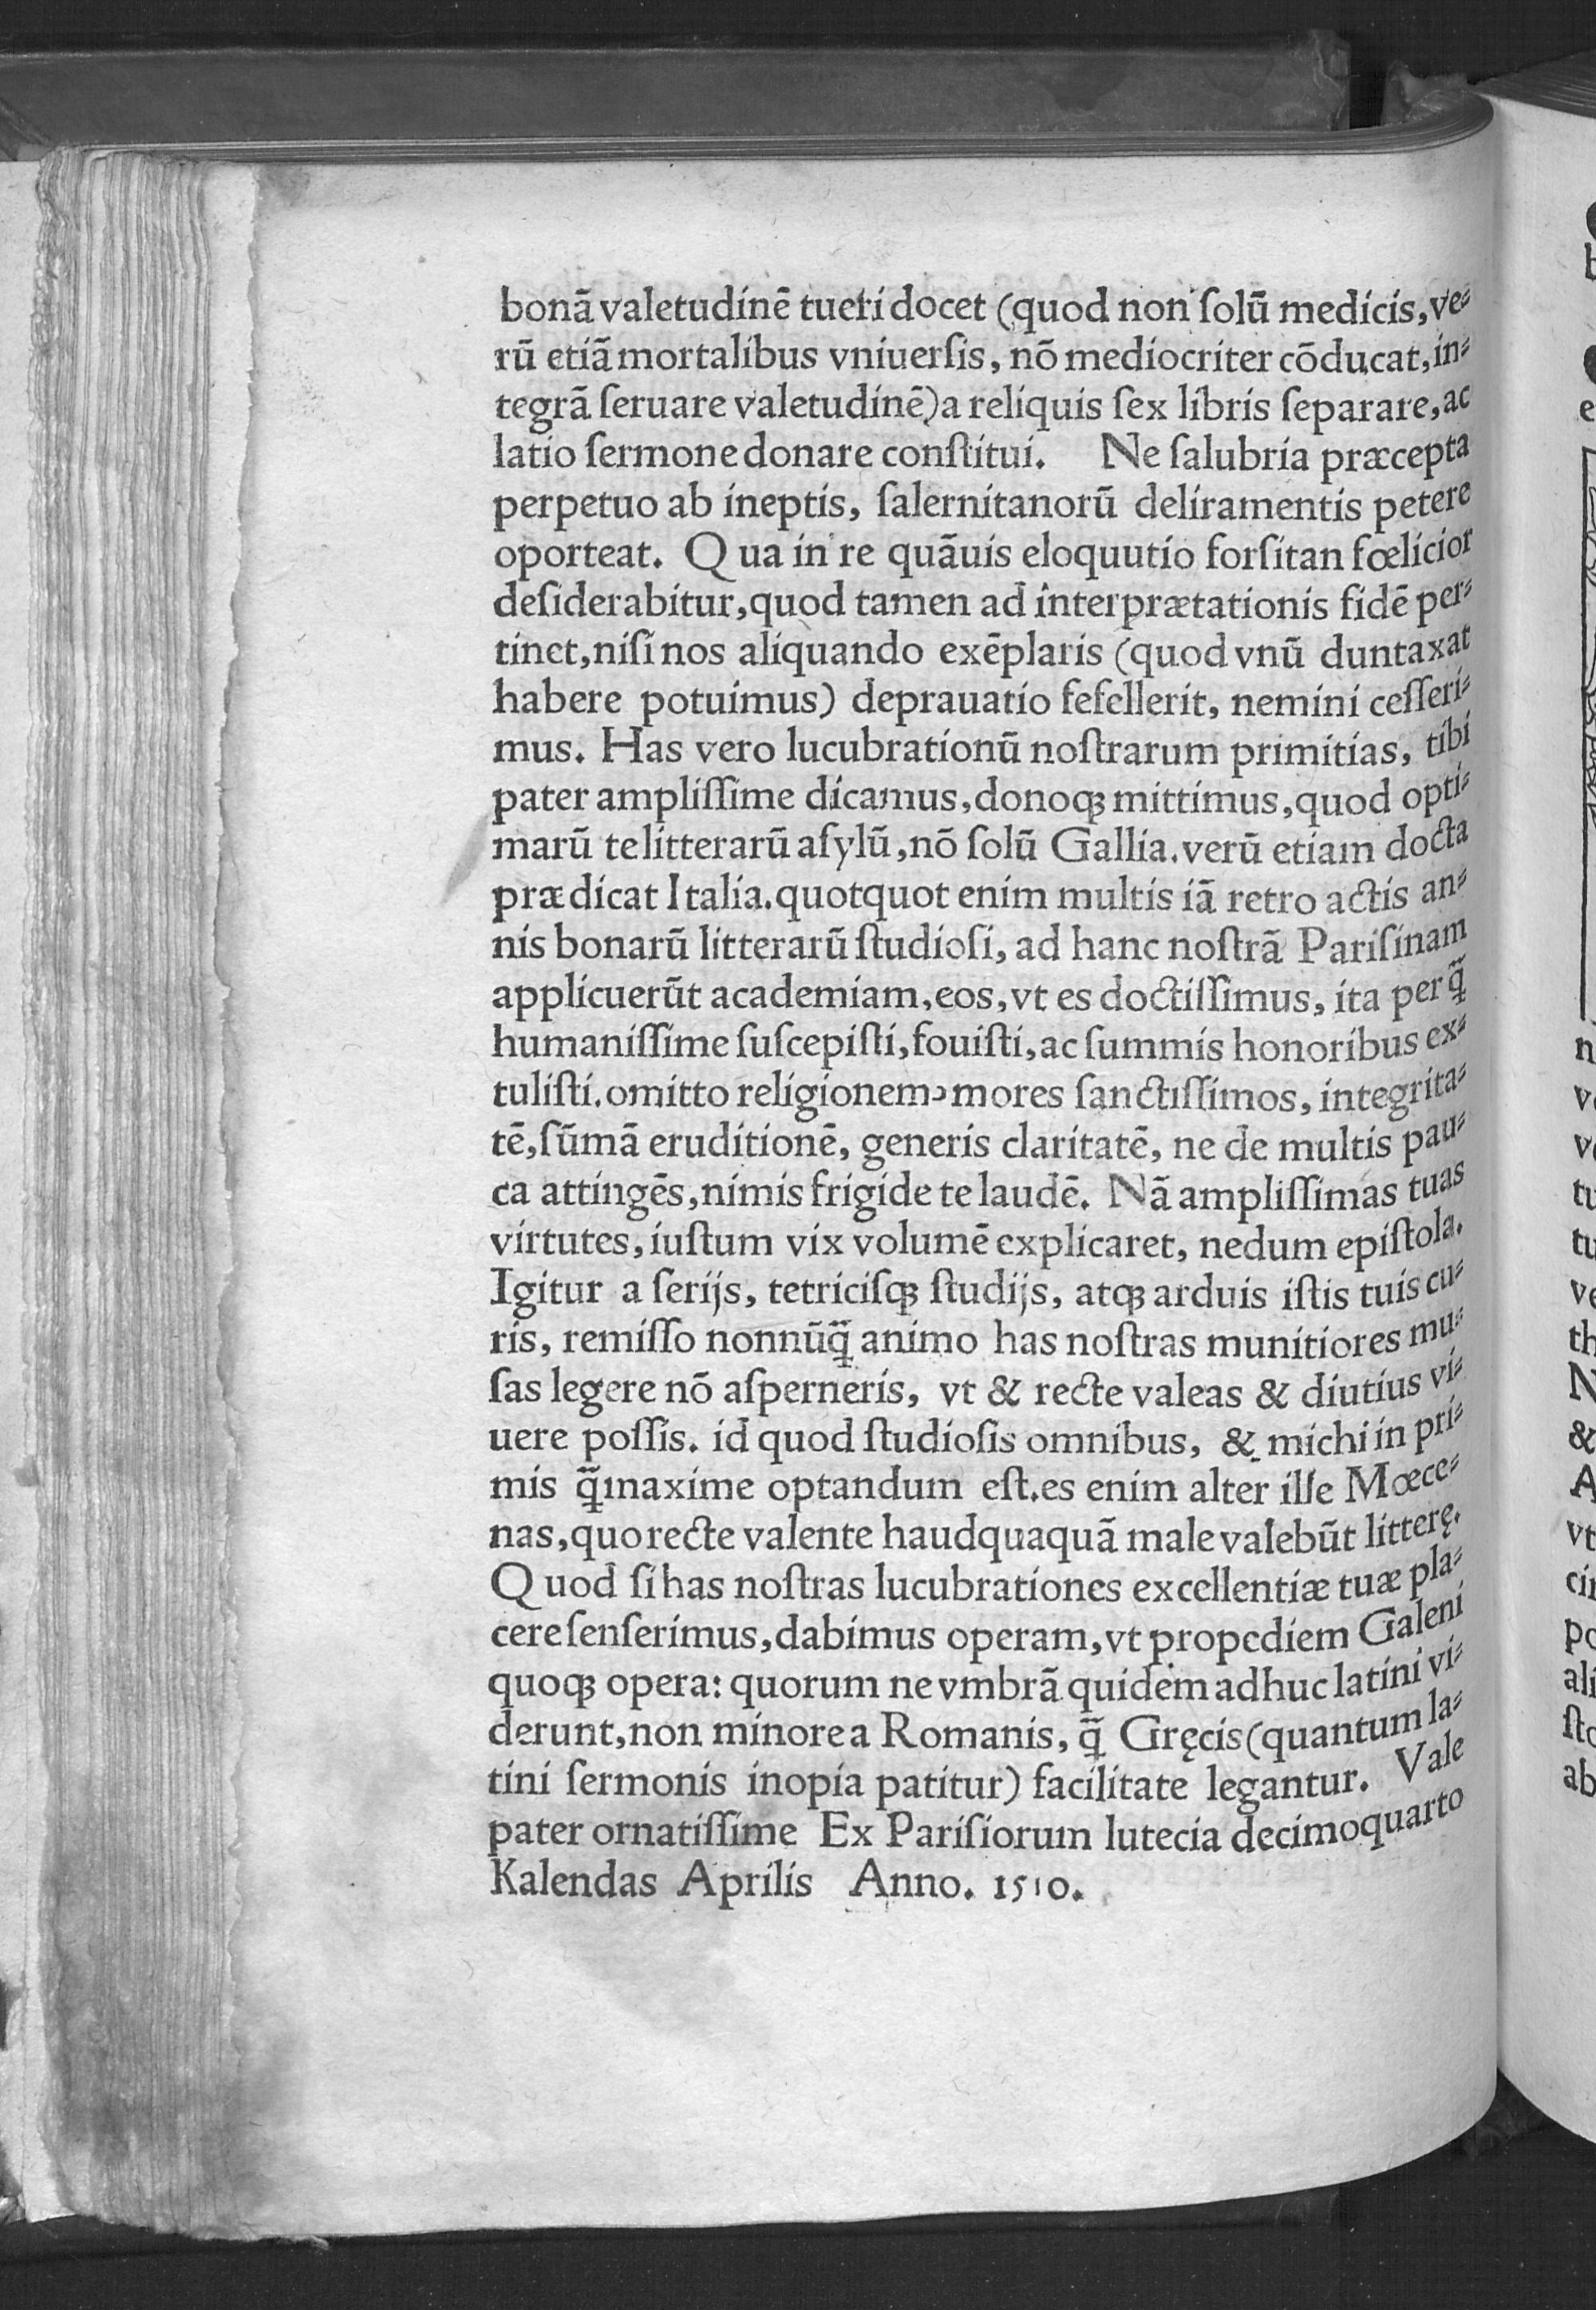 bonā valetudinē tueri docet (quod non ſolū medicis, ve⸗
rū etiā mortalibus vniuerſis, nō mediocriter cōducat, in⸗
tegrā ſeruare valetudinē) a reliquis ſex libris ſeparare, ac
latio ſermone donare conſtitui. Ne ſalubria præcepta
perpetuo ab ineptis, ſalernitanorū deliramentis petere
oporteat. Qua in re quāuis eloquutio forſitan fœlicior
deſiderabitur, quod tamen ad interprætationis fidē per⸗
tinet, niſi nos aliquando exēplaris (quod vnū duntaxat
habere potuimus) deprauatio fefellerit, nemini ceſſeri⸗
mus. Has vero lucubrationū noſtrarum primitias, tibi
pater ampliſſime dicamus, donoqꝫ mittimus, quod opti⸗
marū te litterarū aſylū, nō ſolū Gallia. verū etiam docta
prædicat Italia. quotquot enim multis iā retro actis an⸗
nis bonarū litterarū ſtudioſi, ad hanc noſtrā Pariſinam
applicuerūt academiam, eos, vt es doctiſſimus, ita per q̄
humaniſſime ſuſcepiſti, fouiſti, ac ſummis honoribus ex⸗
tuliſti. omitto religionem, mores ſanctiſſimos, integrita⸗
tē, ſūmā eruditionē, generis claritatē, ne de multis pau⸗
ca attingēs, nimis frigide te laudē. Nā ampliſſimas tuas
virtutes, iuſtum vix volumē explicaret, nedum epiſtola.
Igitur a ſerijs, tetriciſqꝫ ſtudijs, atqꝫ arduis iſtis tuis cu⸗
ris, remiſſo nonnūq̄ animo has noſtras munitiores mu⸗
ſas legere nō aſperneris, vt & recte valeas & diutius vi⸗
uere poſſis. id quod ſtudioſis omnibus, & michi in pri⸗
mis q̄maxime optandum eſt. es enim alter ille Mœce⸗
nas, quo recte valente haudquaquā male valebūt litterę.
Quod ſi has noſtras lucubrationes excellentiæ tuæ pla⸗
cere ſenſerimus, dabimus operam, vt propediem Galeni
quoqꝫ opera: quorum ne vmbrā quidem adhuc latini vi⸗
derunt, non minore a Romanis, q̄ Gręcis (quantum la⸗
tini ſermonis inopia patitur) facilitate legantur. Vale
pater ornatiſſime Ex Pariſiorum lutecia decimoquarto
Kalendas Aprilis Anno. 1510.